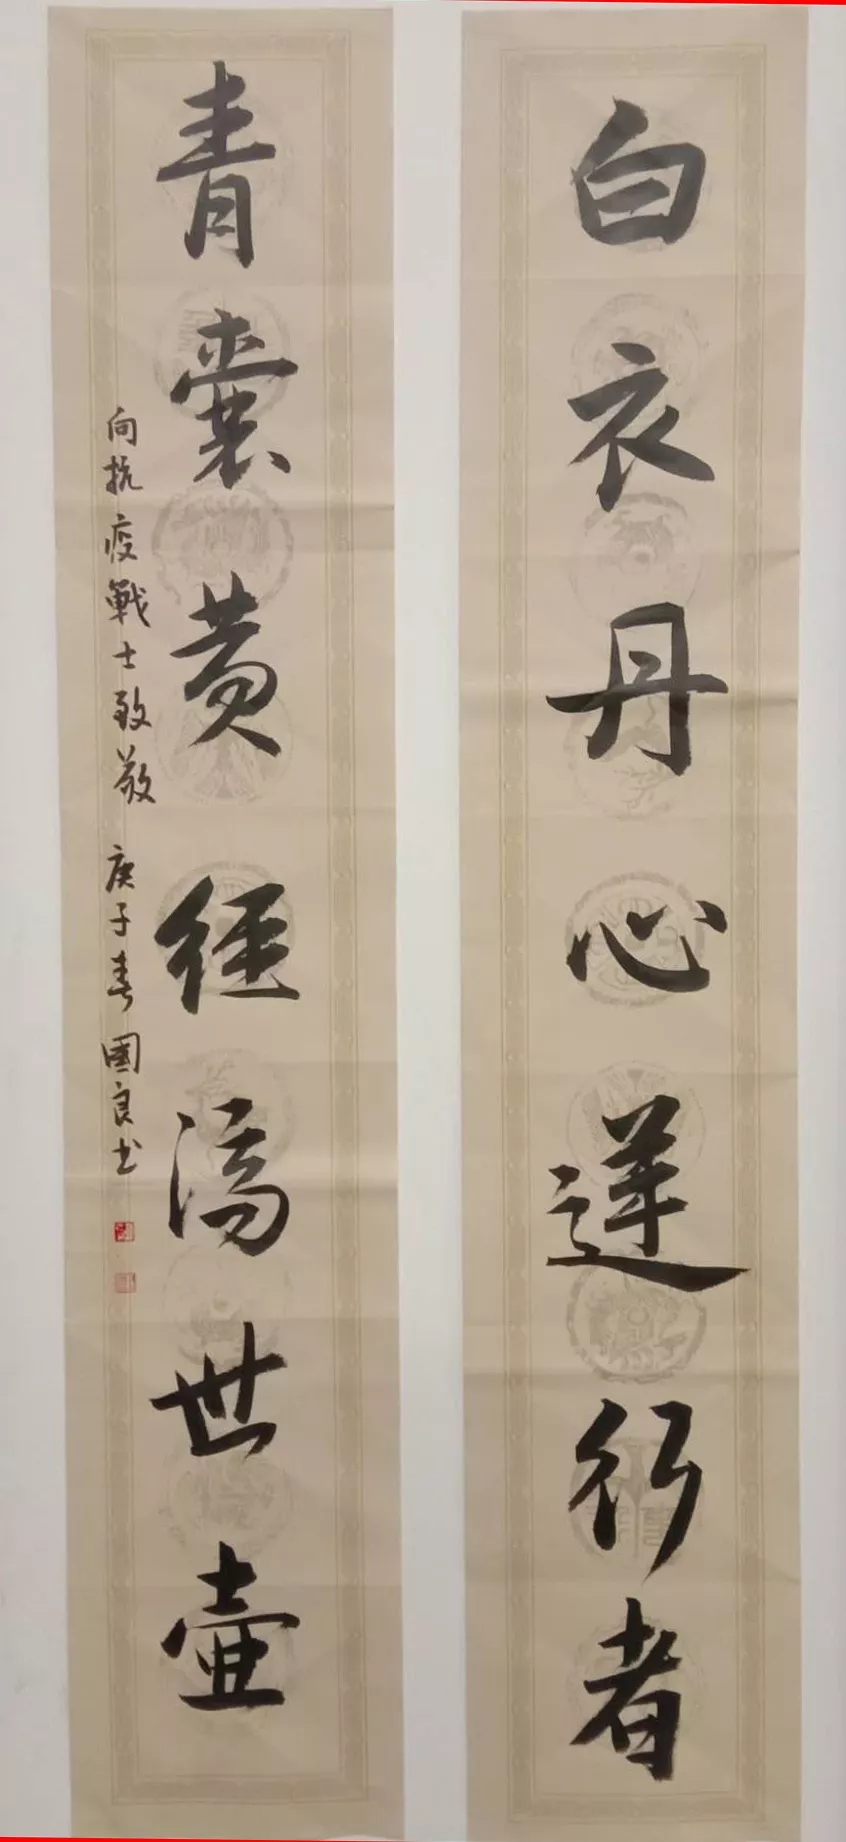 白衣丹心逆行者
青囊黄经济世壶
向抗疫戰士致敬 庚子春 國良书